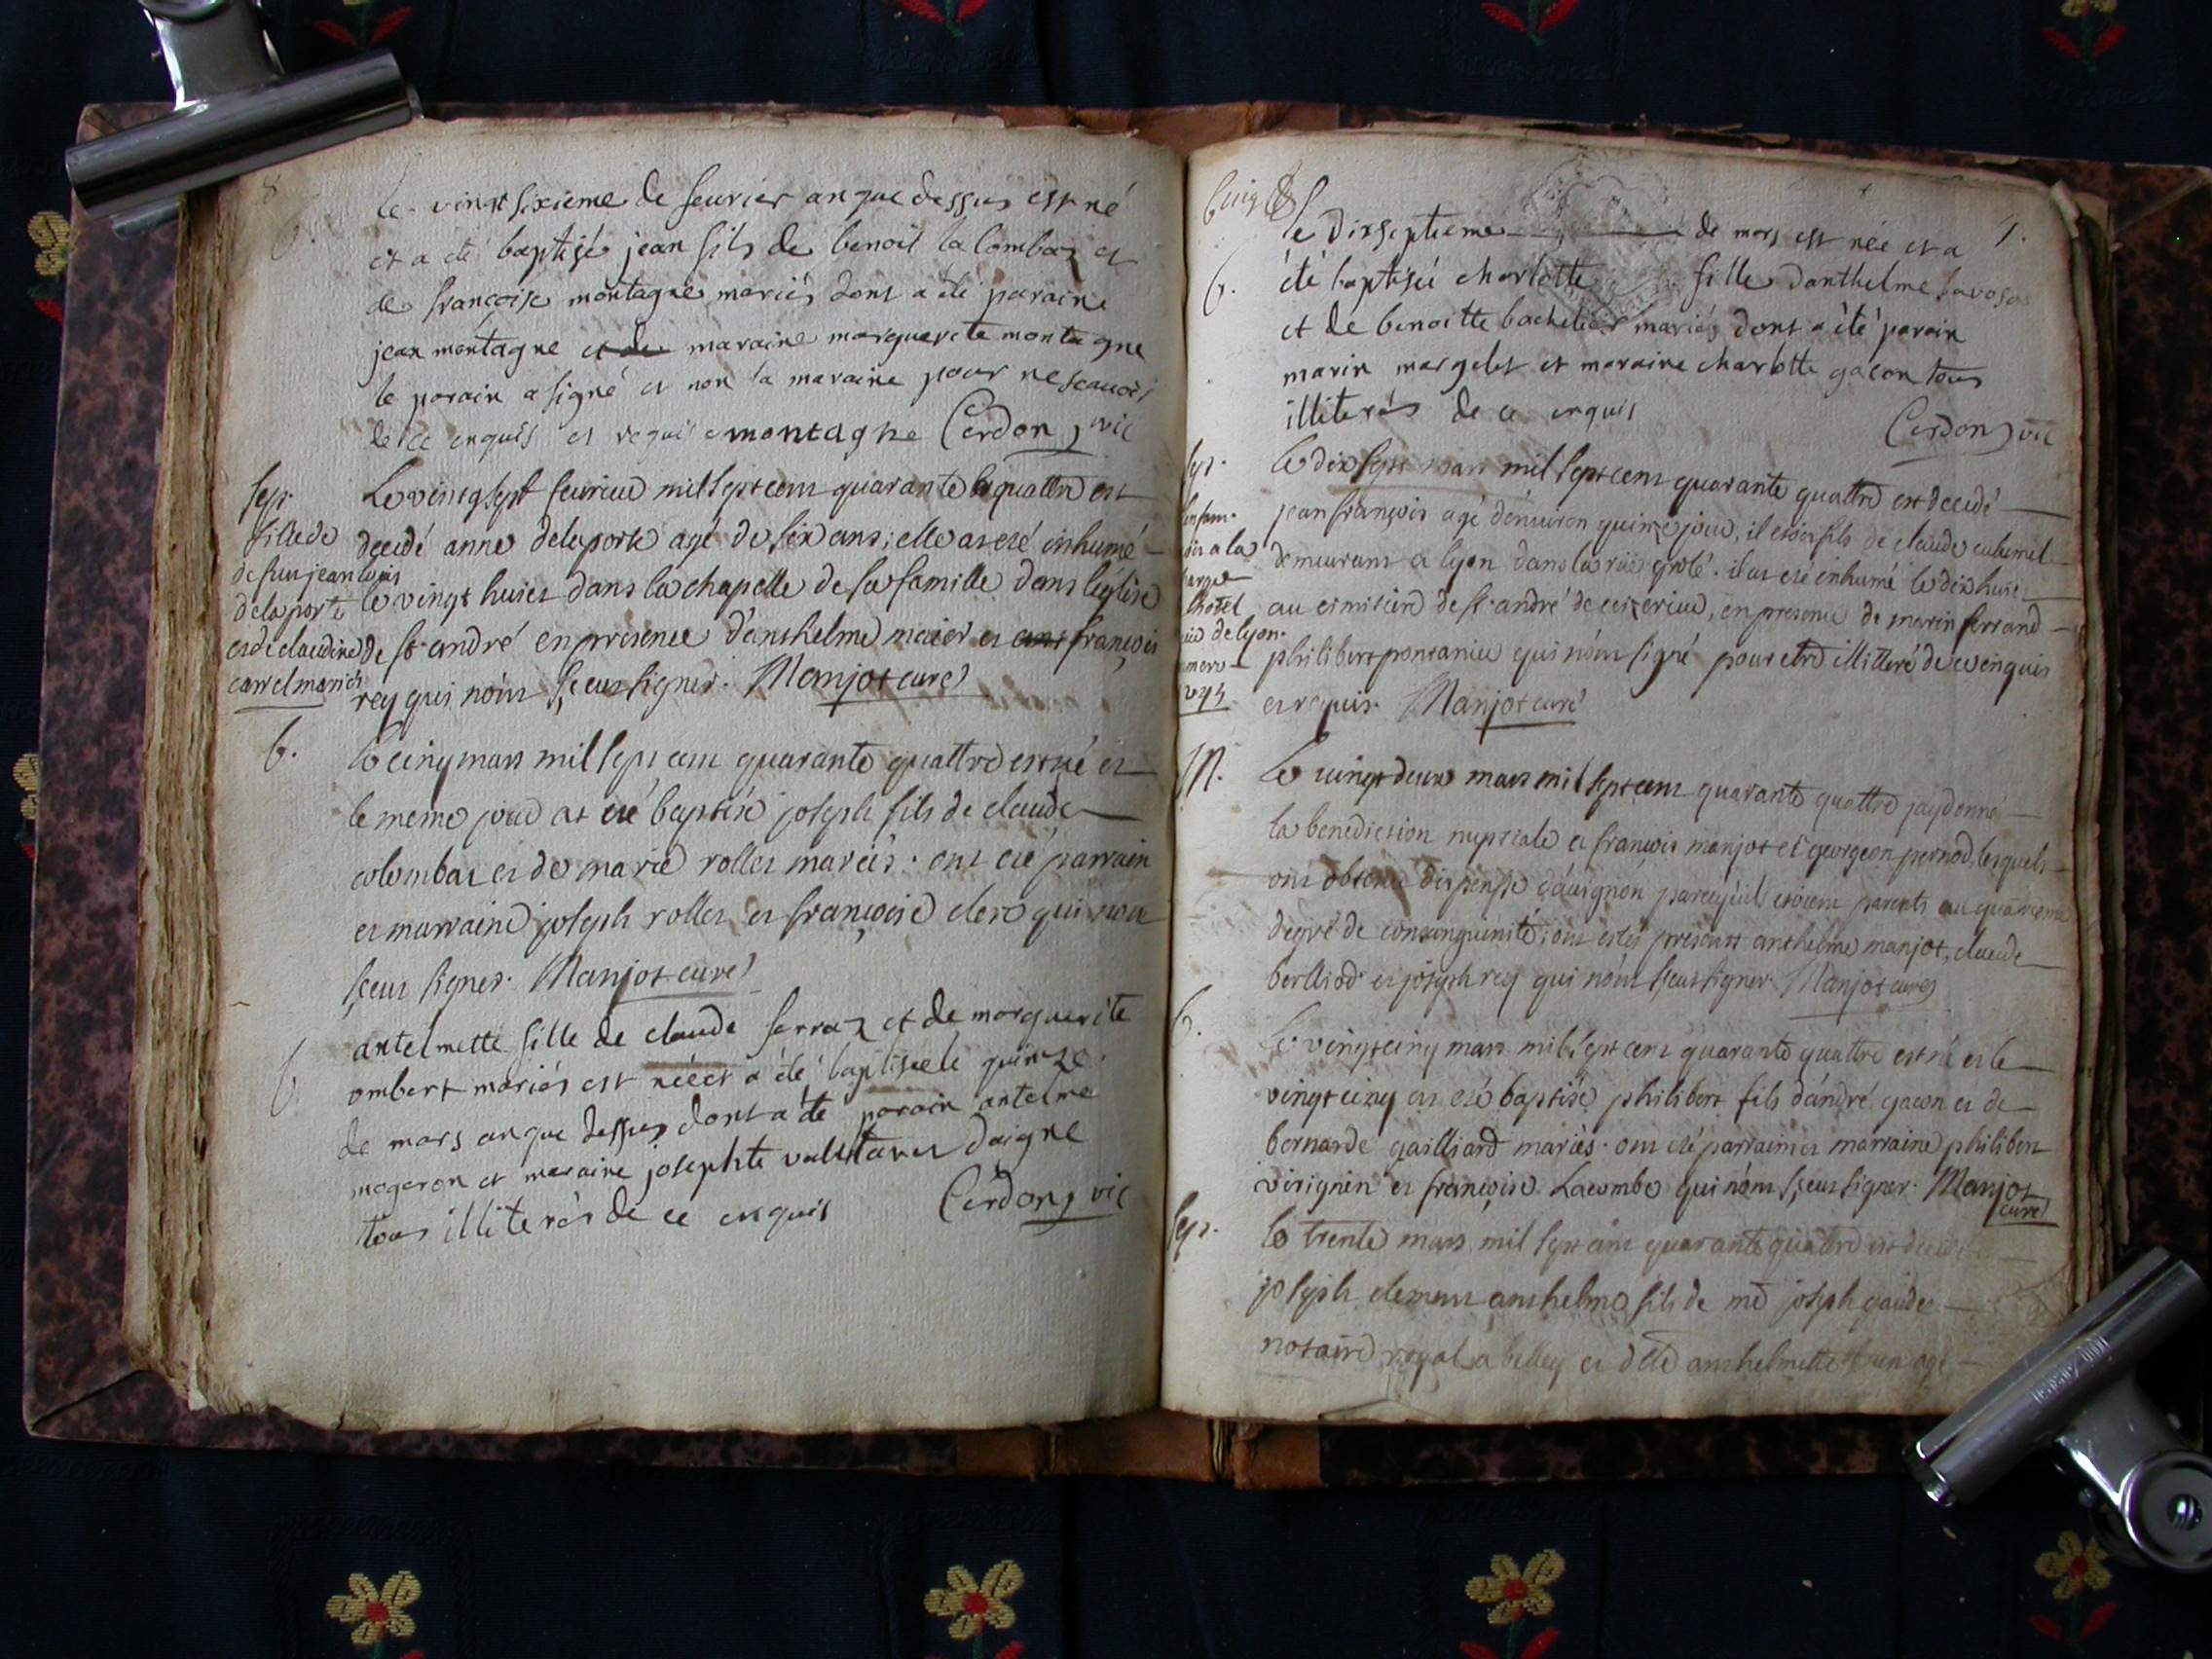 le vingt sixieme de feurier an que dessus est né
et a été baptisé jean fils de benoit la Combaz et
de françoise montagne mariés dont a été paraine
jean montagne et de maraine marguerete montagne
le parain a signé et non la maraine pour ne scauoir
de ce enquis et requise montagne Cerdon vic
sep.
fille de
defun jean louis
delaporte
et de claudine
carrel mariés
Le vintg sept feurier mil sept cent quarante quattre est
decedé anne delaporte agé de six ans; elle at eté inhumé
le vingt huict dans la chapelle de sa famille dans l'église
de st andré en presence d'anthelme maier et ant françois
rey qui nòint sceut signer. Manjot curé
b.
le cinq mars mil sept cent quarante quattre est né et
le meme jour at eté baptisé joseph fils de claude
colombaz et de marie rollet mariés. ont eté parrain
et marraine joseph rollet et françoise clerc qui nont
sceut signer. Manjot curé
b
antelmette fille de claude ferraz et de marguerite
ombert mariés est néé et a été baptisée le quinze
de mars an que dessus dont a été parain antelme
mogeron et maraine josephte daigne
tous illiterés de ce enquis Cerdon vic
1.
le dixseptieme de mars est née et a
b.
été baptisée charlotte fille danthelme
et de benoitte bachelier mariés dont a été parain
marin margelet et maraine charlotte gacon tous
illiterés de ce enquis Cerdon vic
sep.
enfan.
a la
l'hotel
de lyon.
Le dix sept mars mil sept cent quarante quattre est decedé
jean françois agé dénuiron quinze jour, il etoit fils de claude
demeurant a lyon dans la rüe grolé. il at eté enhumé le dix huit
au cimitiere de st. andré de ceizerieu, en presence de marin ferrand
philibert pontanier qui nòint signé pour etre illitteré de ce enquis
et requis. Manjot curé
M.
Le vingt deux mars mil sept cent quarante quattre jay donné
la benediction nuptiale a françois manjot et georgeon pernod, lesquels
ont obtenu dispense d'auignon parcequ'il etoient parents au quatrieme
degré de consanguinité; ont estés present anthelme manjot, claude
berliod et joseph rey qui nòint sceut signer. Manjot curé
b.
Le vingt cinq mars mil sept cent quarante quattre est né et le
vingt cinq at eté baptisé philibert fils d'andré gacon et de
bernarde gailliard mariés. ont eté parrain et marraine philibert
virignin et françoise Lacombe qui nòint sceut signer. Manjot
curé
sep.
le trente mars mil sept cent quarante quattre est decedé
joseph clement anthelme fils de me joseph gaudet
notaire royal a belley et de anthelmette agé